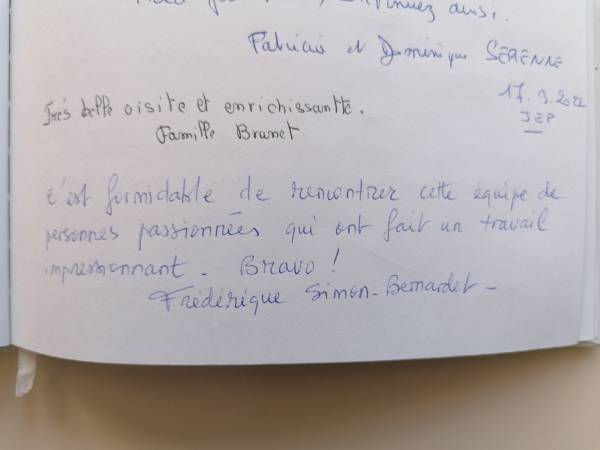 continuez ainsi.
Patricia et Dominique SERENNE
17.9.2022
JEP
Très belle visite et enrichissante.
Famille Brunet
c'est formidable de rencontrer cette équipe de
personnes passionnées qui ont fait un travail
impressionnant. Bravo !
Frédérique Simon-Bernardet -